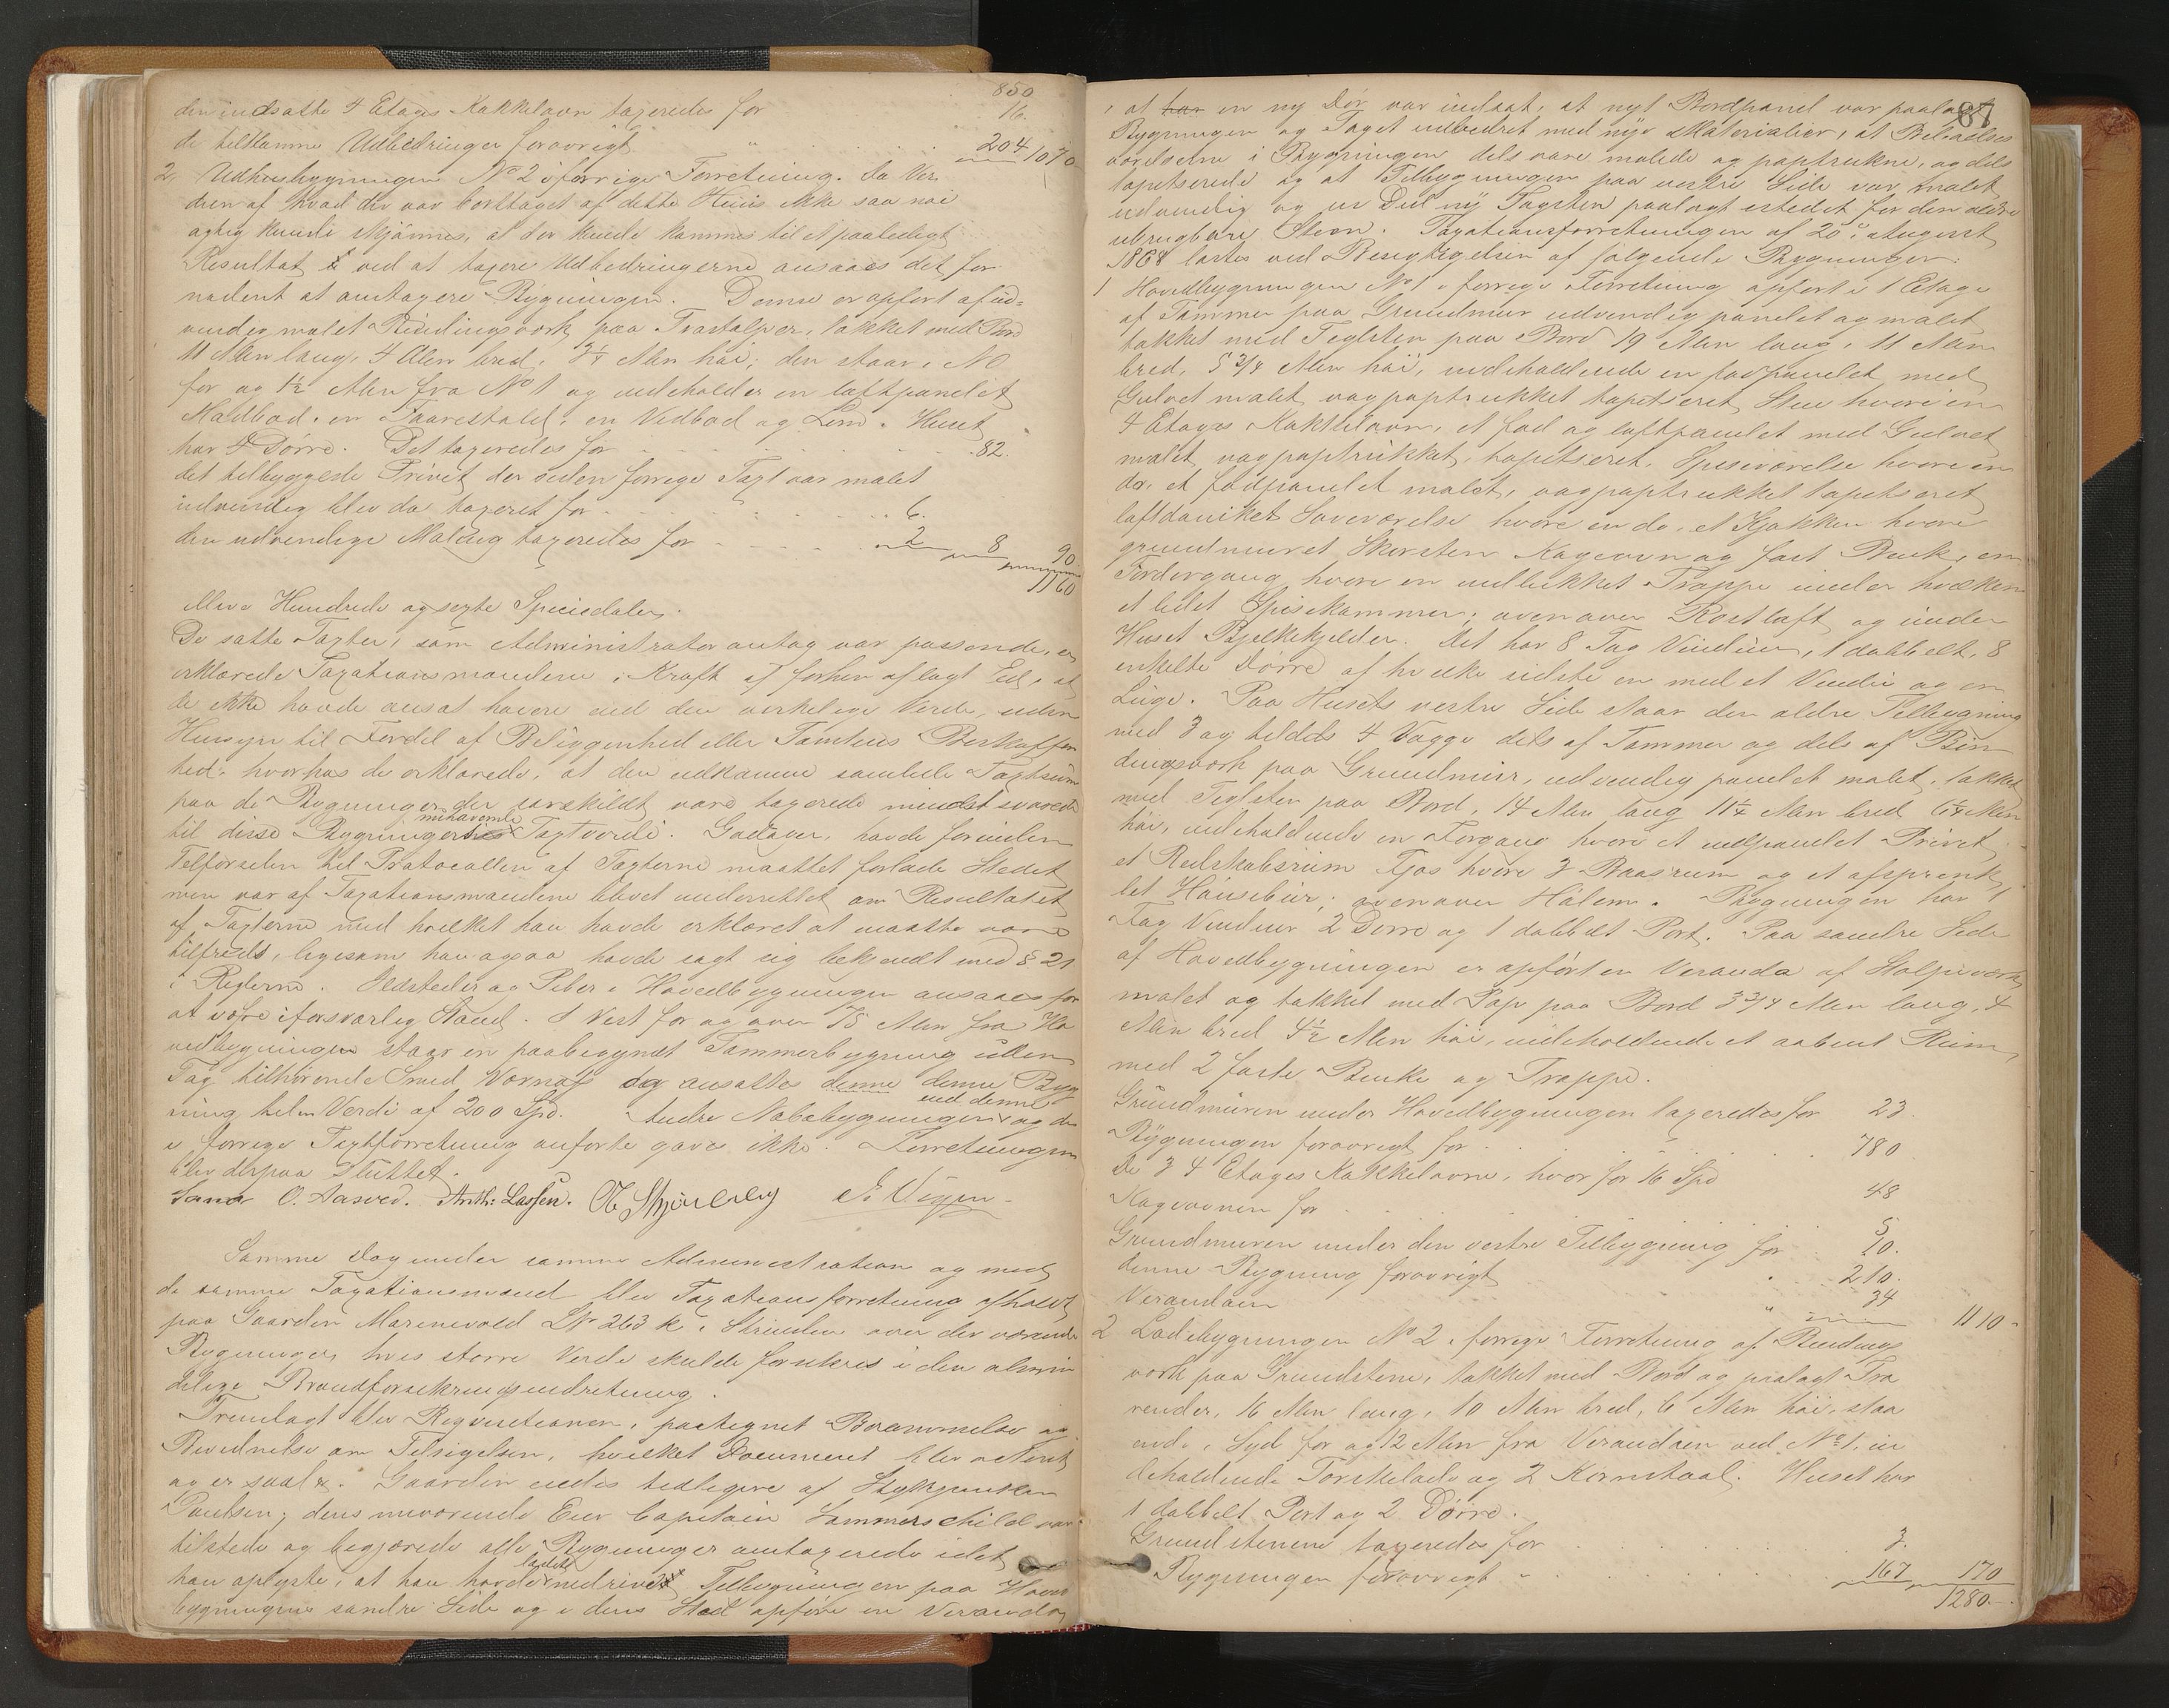 850
den indsatte 4 Etages Kakkelovn taxeredes for 16.
de tilkomne Udbedringer forøvrigt " 204 1070
2, Udhusbygningen No 2 i forrige Forretning. Da Ver
dien af hvad der var borttaget af dette Huus ikke saa nøi
agtig kunde skjønnes, at der kunde kommes til et paalideligt
Resultat ved at taxere Udbedringerne ansaaes det for
nødent at omtaxere Bygningen. Denne er opført af ud-
vendig malet Bindingsværk paa Træstolper, takket med Bord
11 Alen lang, 4 Alen bred, 3¼ Alen høi; den staar i NO
for og 1½ Alen fra No 1 og indeholder en loftpanelet
Maldbod, en Faarestald, en Vedbod og Lem. Huset
har 4 Dørre. Det taxeredes for 82.
det tilbyggede Privet der siden forrige Taxt var malet
indvendig blev da taxeret for 6.
den udvendige Maling taxeredes for 2 8 90
1160
elleve Hundrede og sexti Speciedaler.
De satte Taxter, som Administrator antog var passende, er
erklærede Taxationsmændene i Kraft af forhen aflagt Eed, at
de ikke havde ansat høiere end den virkelige Værdi, uden
Hensyn til Fordel af Beliggenhed eller Tomtens Beskaffen
hed, hvorhos de erklærede, at den udkomne samlede Taxtsum
paa de Bygninger der særskildt vare taxerede mindst svarede
til disse Bygningers nuhavende Taxtværdi. Gadaver, havde forinden
Tilførselen til Protocollen af Taxterne maattet forlade Stedet
men var af Taxationsmændene blevet underrettet om Resultatet
af Taxterne med hvilket han havde erklæret at maatte være
tilfreds, ligesom han ogsaa havde sagt sig bekjendt med § 21
i Reglerne. Ildsteder og Piber i Hovedbygningen ansaaes for
at være i forsvarlig Stand. I Vest for og over 78 Alen fra Ho
vedbygningen staar en paabegyndt Tømmerbygning uden
Tag tilhørende Smed Wornæs og ansattes denne denne Byg
ning til en Verdi af 200 Spd. Andre Nabobygninger end denne og de
i forrige Taxtforretning anførte gaves ikke. Forretningen
blev derpaa sluttet.
Sand O. Aasved. Anth: Lassen. O Stjernberg
Samme Dag under samme Administration og med
de samme Taxationsmænd blev Taxationsforretning afholdt
paa Gaarden Marienvold LN 263 k i Strinden over der værende
Bygninger, hvis større Verdi skulde forsikres i den almin
delige Brandforsikringsindretning.
Fremlagt blev Reqvisitionen, paategnet Berammelse og
Bevidnelse om Tilsigelsen, hvilket Document blev acteret
og er saal. Gaarden eiedes tidligere af Stykjunker
Poulsen; dens nuværende Eier Capitain Sommerschild var
tilstede og begjærede alle Bygninger omtaxerede idet
han oplyste, at han havde ladet nedrive Tilbygningen paa Hoved
bygningens søndre Side og i dens Sted opføre en Veranda
87
, at en ny Dør var indsat, at nyt Bordpanel var paalagt
Bygningen og Taget udbedret med nye Materialier, at Beboelses
værelserne i Bygningen dels vare malede og paptrukne, og dels
tapetserede og at Tilbygningen paa vestre Side var malet
udvendig og en Del ny Tagsten paalagt istedet for den ældre
ubrugbare Steen. Taxationsforretningen af 20de August
1868 læstes ved Besigtigelsen af følgende Bygninger:
1 Hovedbygningen No 1 i forrige Forretning opført i 1 Etage
af Tømmer paa Grundmur udvendig panelet og malet
takket med Teglsten paa Bord 19 Alen lang, 11 Alen
bred, 5 3/4 Alen høi, indeholdende en fodpanelet med
Gulvet malet vægpaptrukket tapetseret Stue hvori en
4 Etages Kakkelovn, et fod og loftpanelet med Gulvet
malet vægpaptrukket, tapetseret Spiseværelse hvori en
do, et fodpanelet malet, vægpaptrukket tapetseret
loftdaniket Soveværelse hvori en do, et Kjøkken hvori
grundmuret Skorsten Kageovn og fast Bænk, en
Fordergang hvori en indlukket Trappe under hvilken
et lidet Spisekammer; ovenover Røstloft og under
Huset Bjelkekjelder. Det har 8 Fag Vinduer, 1 dobbelt, 8
enkelte Dørre af hvilke sidste en med et Vindu og en
Luge. Paa Husets vestre Side staar den ældre Tilbygning
med 3 og tildels 4 Vægge dels af Tømmer og dels af Bin
dingsværk paa Grundmur, udvendig panelet malet, takket
med Teglsten paa Bord, 14 Alen lang 11¼ Alen bred 6¼ Alen
høi, indeholdende en Forgang hvori et indpanelet Privet,
et Redskabsrum Fjøs hvori 3 Baasrum og et afsprænk
let Hønsebur; ovenover Hølem. Bygningen har 1
Fag Vinduer 2 Dørre og 1 dobbelt Port. Paa søndre Side
af Hovedbygningen er opført en Veranda af Stolpeværk
malet og takket med Pap paa Bord 3 3/4 Alen lang, 4
Alen bred 4½ Alen høi, indeholdende et aabent Rum
med 2 faste Bænke og Trappe.
Grundmuren under Hovedbygningen taxeredes for 23.
Bygningen forøvrigt for 780
De 3 4 Etages Kakkelovne, hver for 16 Spd 48
Kageovnen for 5
Grundmuren under den vestre Tilbygning for 10.
denne Bygning forøvrigt 210.
Verandaen " 34 1110-
2 Ladebygningen No 2 i forrige Forretning af Bindings
værk paa Grundstene, takket med Bord og paalagt Træ
render, 16 Alen lang, 10 Alen bred, 6 Alen høi, staa
ende i Syd for og 12 Alen fra Verandaen ved No 1, in
deholdende Tærskelade og 2 Kornstaal. Huset har
1 dobbelt Port og 2 Dørre.
Grundstenene taxeredes for 3.
Bygningen forøvrigt " 167 170
1280.-